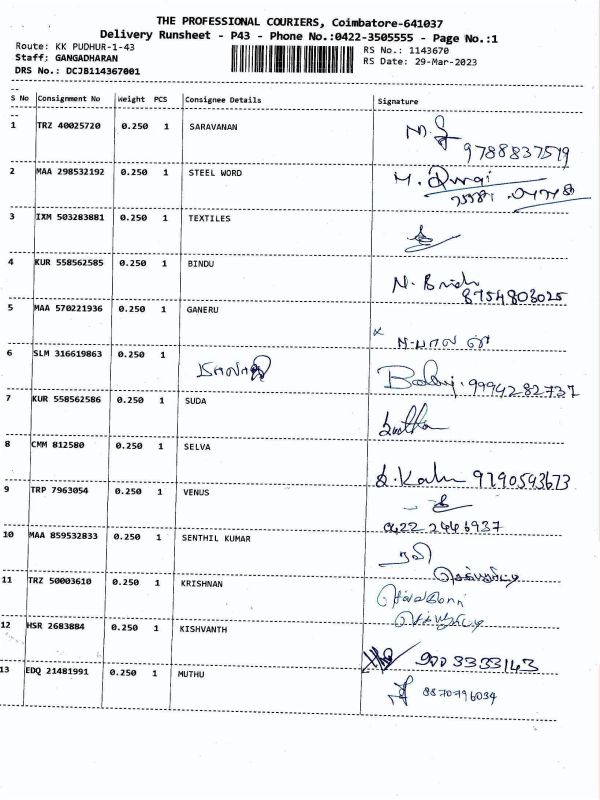 THE PROFESSIONAL COURIERS, Coimbatore-641037
Delivery Runsheet - P43 - Phone No.:0422-3505555 - Page No.:1
Route: KK PUDHUR-1-43 RS No.: 1143670
Staff; GANGADHARAN RS Date: 29-Mar-2023
DRS No.: DCJB114367001
S No Consignment No Weight PCS Consignee Details Signature
1 TRZ 40025720 0.250 1 SARAVANAN
9788837579
2 MAA 298532192 0.250 1 STEEL WORD M.
3 IXM 503283881 0.250 1 TEXTILES
4 KUR 558562585 0.250 1 BINDU N. Bindu
8754803025
5 MAA 570221936 0.250 1 GANERU
6 SLM 316619863 0.250 1
9994282737
7 KUR 558562586 0.250 1 SUDA
8 CMM 812580 0.250 1 SELVA
9790593673
9 TRP 7963054 0.250 1 VENUS
0422 2446937
10 MAA 859532833 0.250 1 SENTHIL KUMAR
ரவி
11 TRZ 50003610 0.250 1 KRISHNAN
12 HSR 2683884 0.250 1 KISHVANTH
13 EDQ 21481991 0.250 1 MUTHU 8870796034